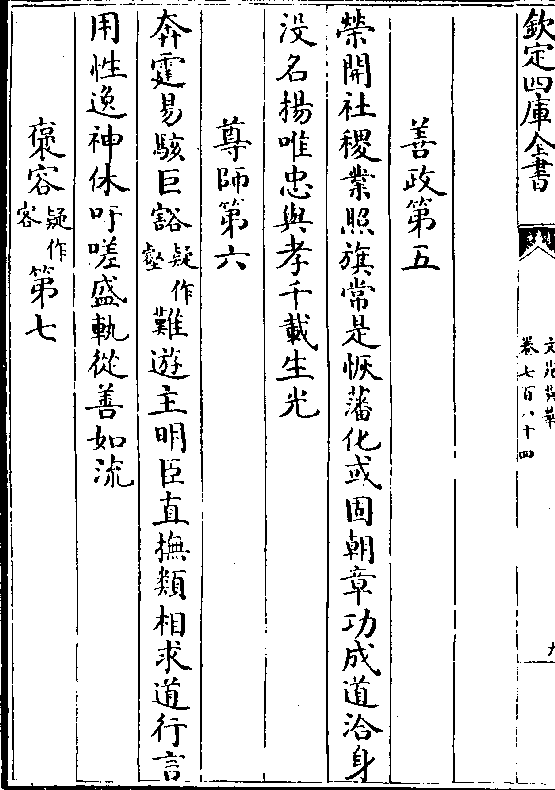 欽定四庫全書
卷七百八十四
善政第五
榮開社稷業照旗常是恢藩化或固朝章功成道洽身
沒名揚唯忠與孝千載生光
尊師第六
奔霆易駭巨豁疑作壑難遊主明臣直撫類相求道行言
用性逸神休吁嗟盛軌從善如流
褒容疑作客第七